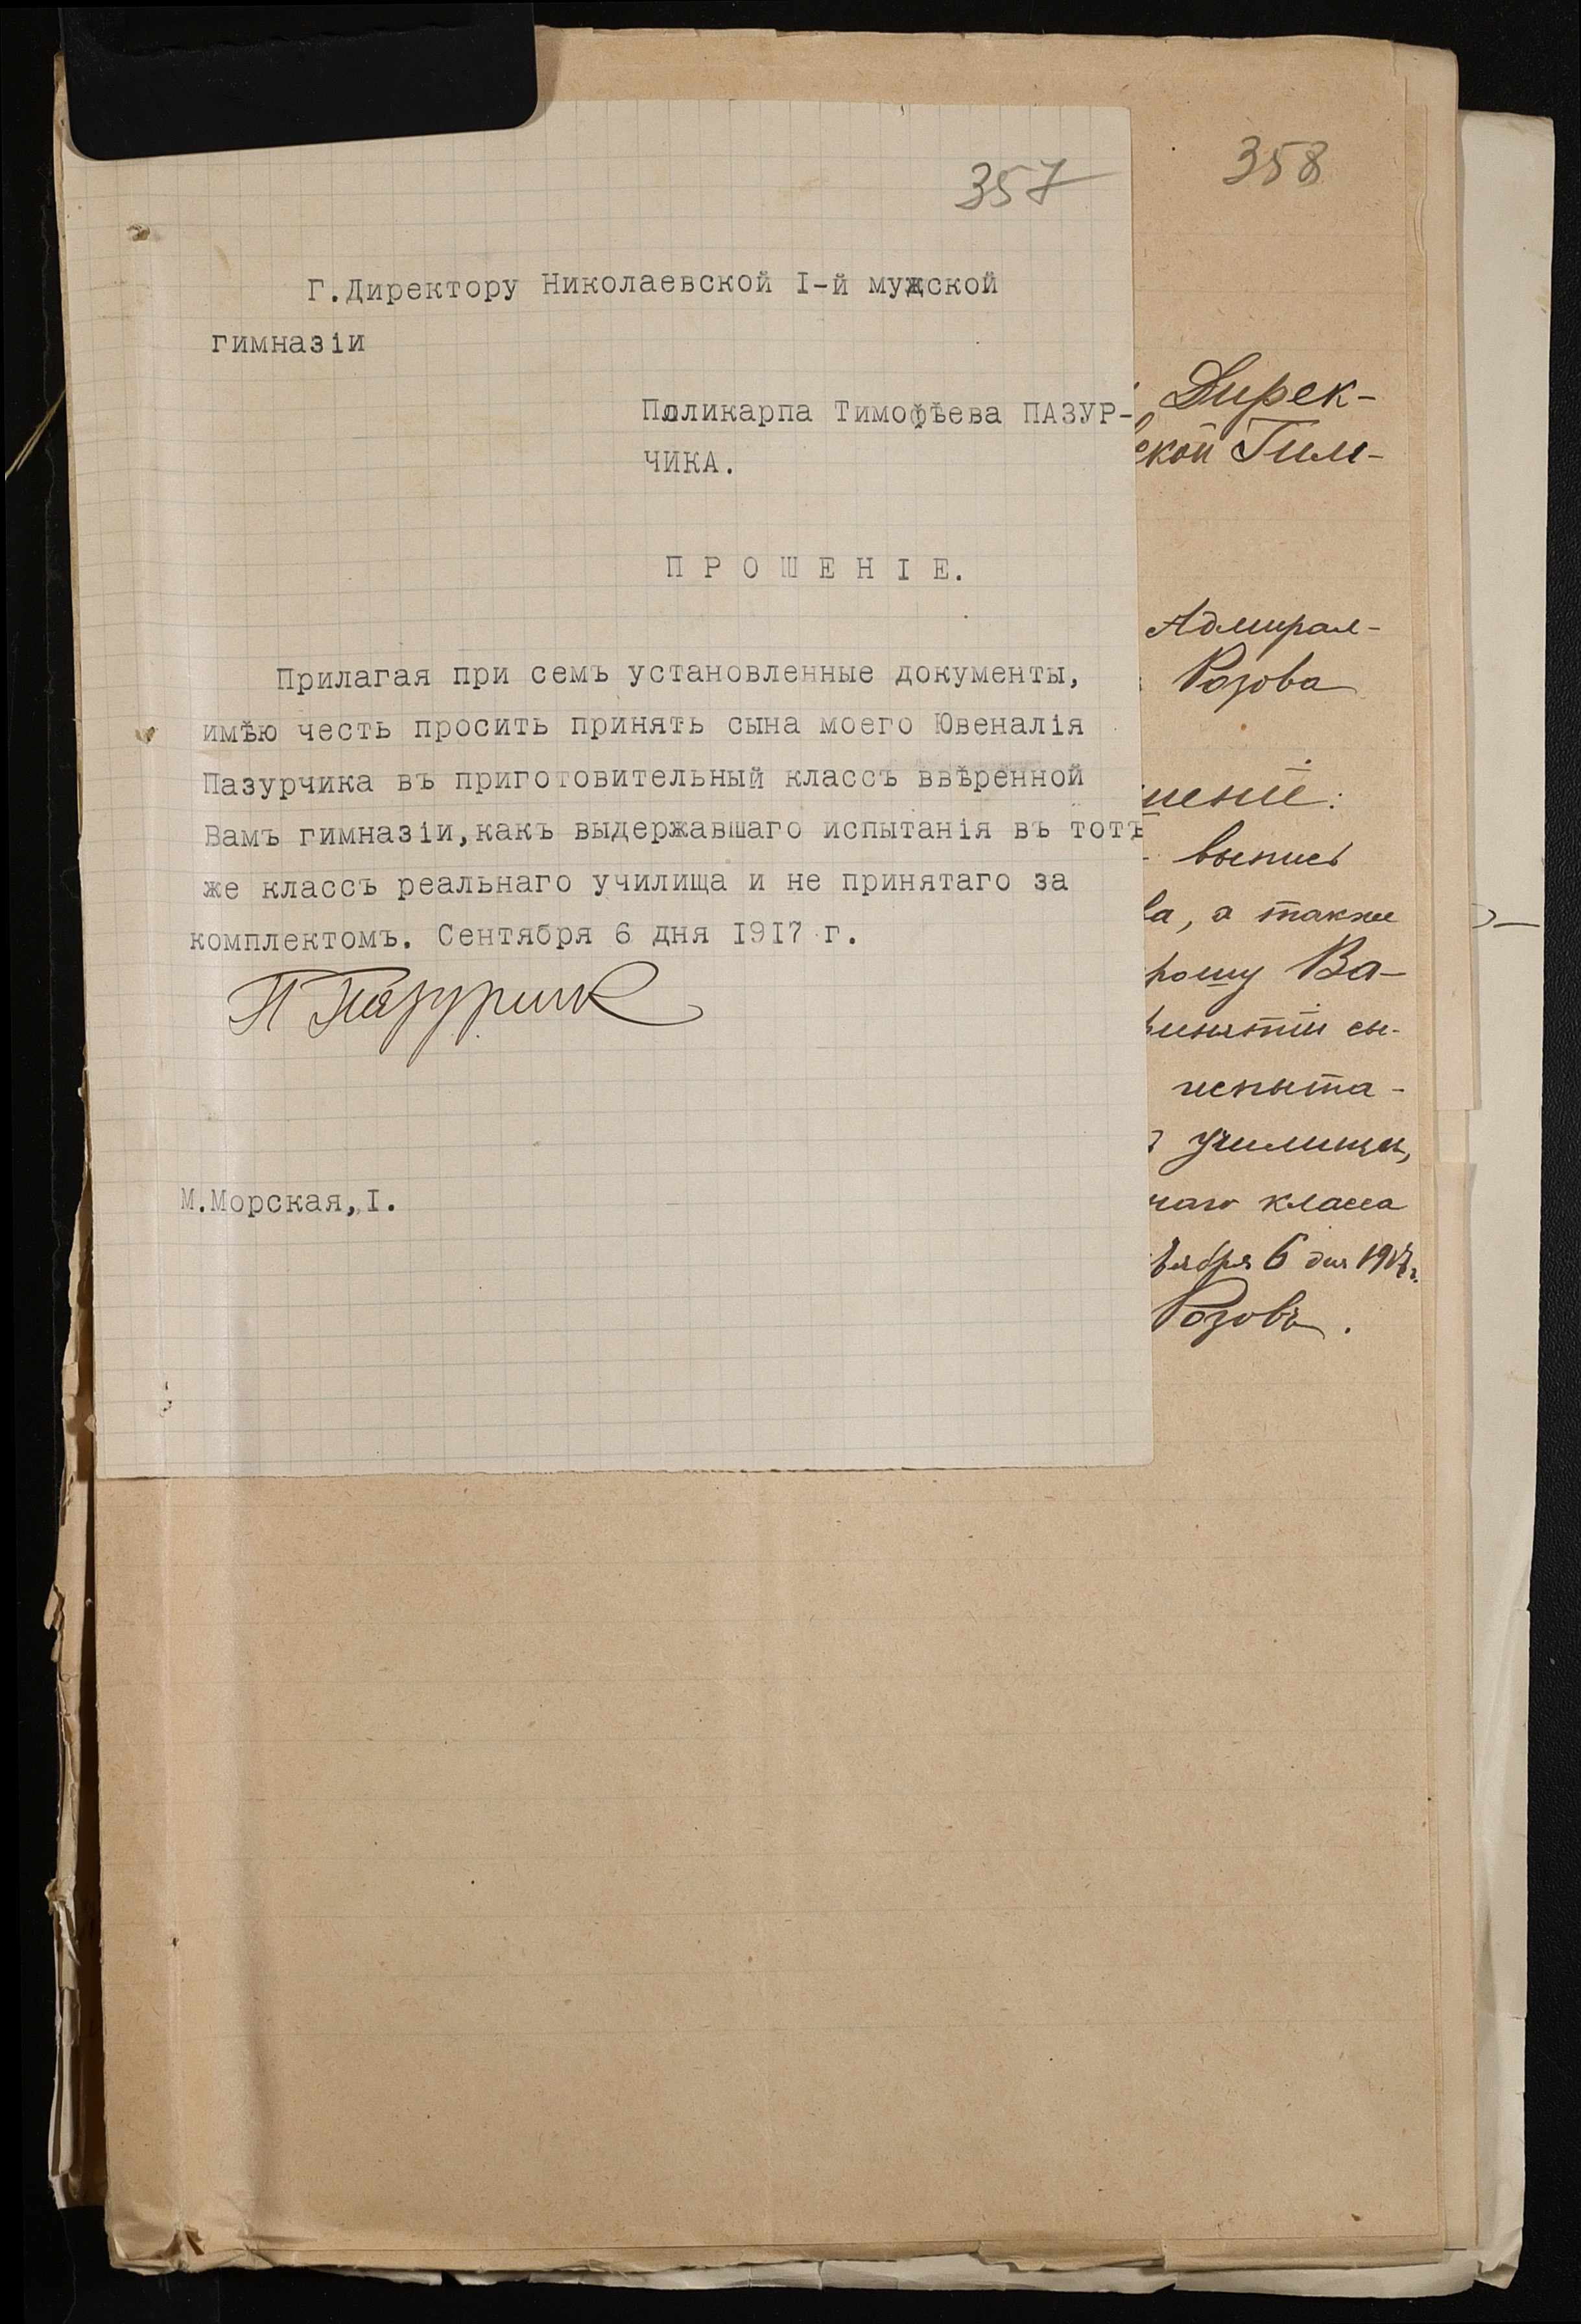 357
Г.Директору Николаевской I-й мужской
гимназіи
Поликарпа Тимофѣева ПАЗУР-
ЧИКА.
ПРОШЕНІЕ.
Прилагая при семъ установленные документы,
имѣю честь просить принять сына моего Ювеналія
Пазурчика въ приготовительный классъ ввѣренной
Вамъ гимназіи,какъ выдержавшаго испытанія въ тотъ
же классъ реальнаго училища и не принятаго за
комплектомъ. Сентября 6 дня 1917 г.
П Пазурчик
М.Морская,I.
358
Дирек-
ской Гим-
Адмирал-
Розова
шеніе:
выпись
ва, а также
прошу Ва-
принятіи сы-
испыта-
училищи,
наго класса
тября 6 дня 1917 г.
Розовъ.